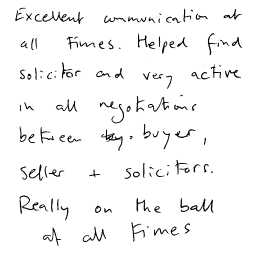 Excellent communication at
all times. Helped find
solicitor and very active
in all negotiations
between buyer,
seller + solicitors.
Really on the ball
at all times